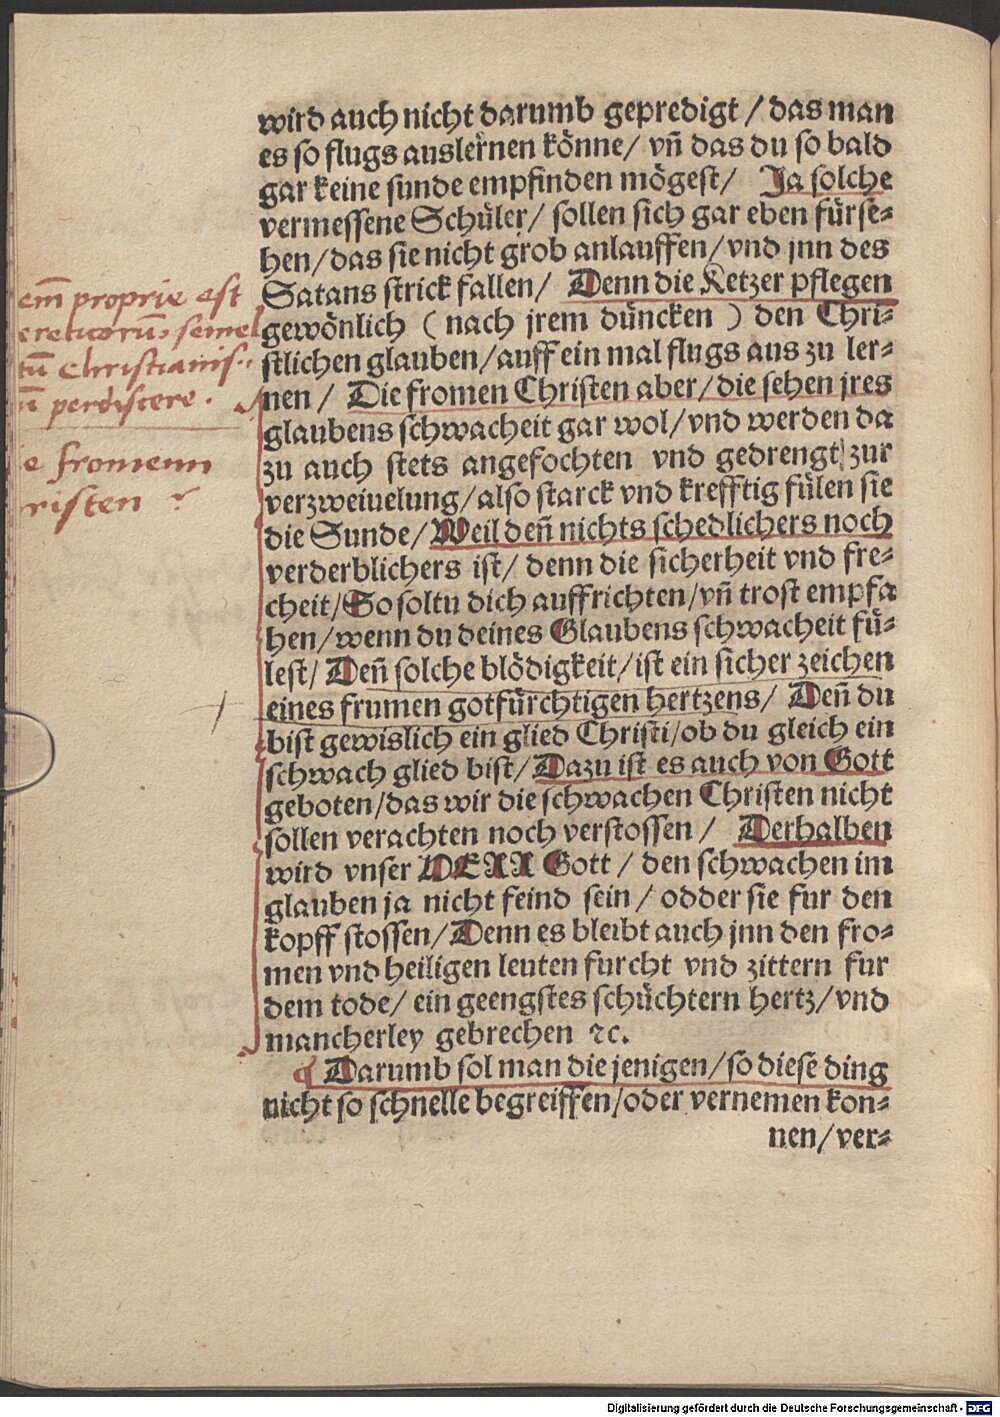 wird auch nicht darumb gepredigt / das man
es so flugs auslernen könne/ vñ das du so bald
gar keine sunde empfinden mögest/ Ja solche
vermessene Schüler/ sollen sich gar eben fürse=
hen/das sie nicht grob anlauffen/vnd jnn des
Satans strick fallen/ Denn die Ketzer pflegen
gewönlich ( nach jrem düncken ) den Chri=
stlichen glauben/auff ein mal flugs aus zu ler=
nen / Die fromen Christen aber/die sehen jres
glaubens schwacheit gar wol/vnd werden da
zu auch stets angefochten vnd gedrengt zur
verzweiuelung/also starck vnd krefftig fülen sie
die Sunde/Weil deñ nichts schedlichers noch
verderblichers ist/ denn die sicherheit vnd fre=
cheit/So soltu dich auffrichten/vñ trost empfa
hen/wenn du deines Glaubens schwacheit fü=
lest/ Deñ solche blödigkeit/ist ein sicher zeichen
eines frumen gotfürchtigen hertzens/ Deñ du
bist gewislich ein glied Christi/ob du gleich ein
schwach glied bist/Dazu ist es auch von Gott
geboten/das wir die schwachen Christen nicht
sollen verachten noch verstossen / Derhalben
wird vnser HERR Gott / den schwachen im
glauben ja nicht feind sein/ odder sie fur den
kopff stossen/Denn es bleibt auch jnn den fro=
men vnd heiligen leuten furcht vnd zittern fur
dem tode/ ein geengstes schüchtern hertz/vnd
mancherley gebrechen ꝛc.
Darumb sol man die jenigen/so diese ding
nicht so schnelle begreiffen/oder vernemen kon=
nen/ver=
em̄ proprie est
ereticorū, semel
tū Christianis
perdiscere.
e fromenn
risten
Digitalisierung gefördert durch die Deutsche Forschungsgemeinschaft - DFG